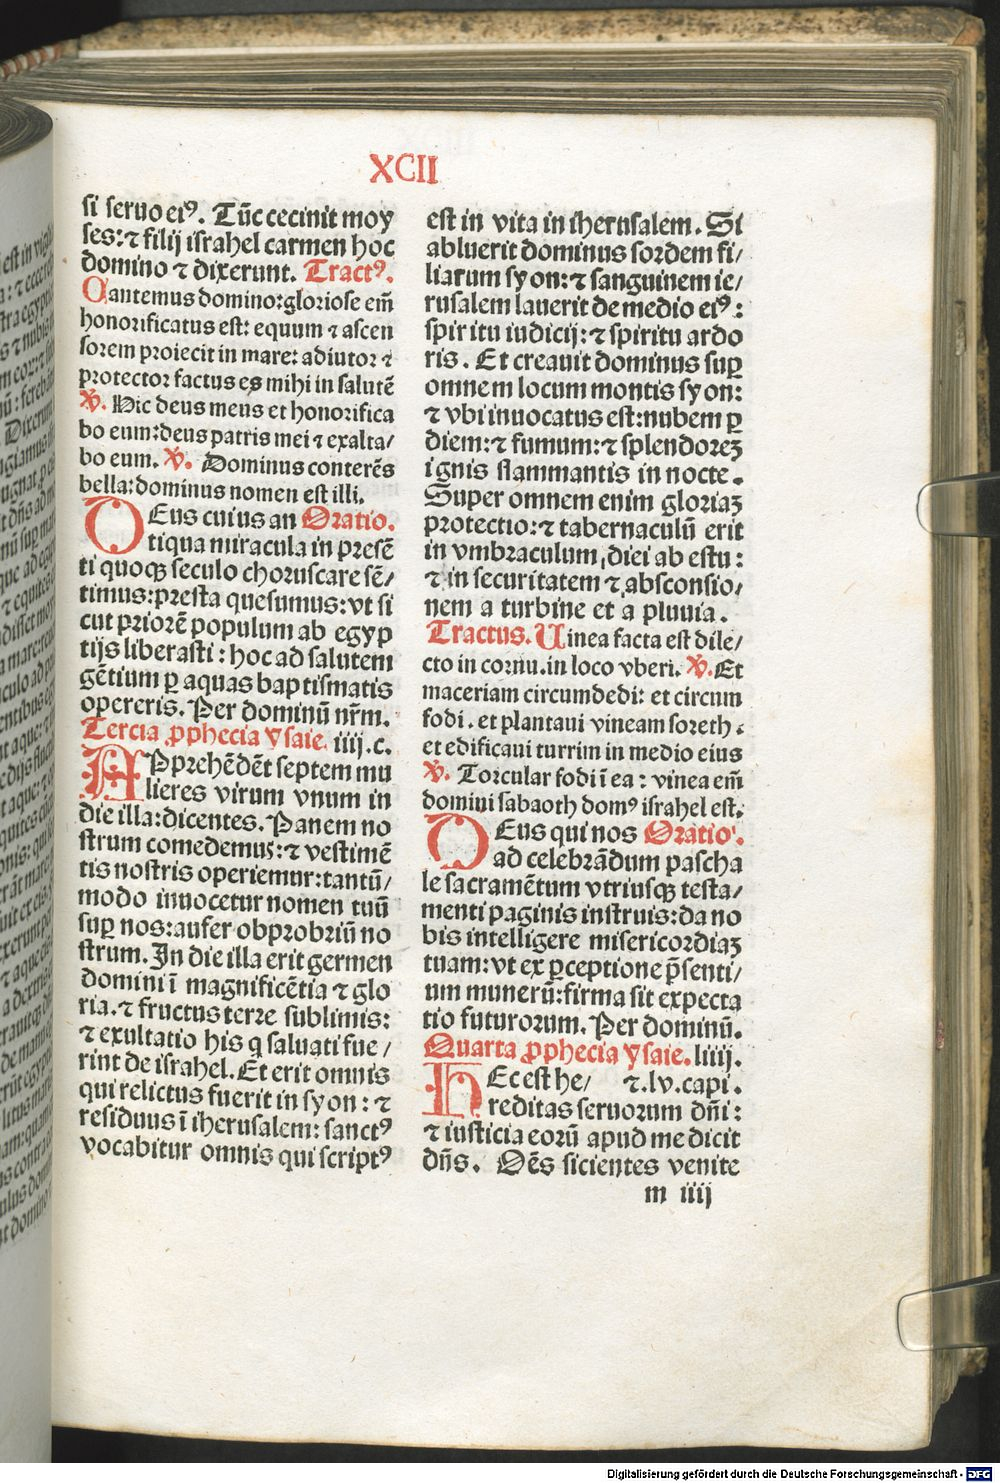 XCII
si seruo eiꝰ. Tūc cecinit moy
ses: ⁊ filij israhel carmen hoc
domino ⁊ dixerunt. Tractꝰ.
Cantemus domino: gloriose em̄
honorificatus est: equum ⁊ ascen
sorem proiecit in mare: adiutor ⁊
protector factus es mihi in salutē
℣. Hic deus meus et honorifica
bo eum: deus patris mei ⁊ exalta/
bo eum. ℣. Dominus conterēs
bella: dominus nomen est illi.
DEus cuius an Oratio.
tiqua miracula in presē
ti quoqꝫ seculo choruscare sē/
timus: presta quesumus: vt si
cut priorē populum ab egyp
tijs liberasti: hoc ad salutem
gētium ꝑ aquas baptismatis
opereris. Per dominū nr̄m.
Tercia ꝓphecia ysaie. iiij.c.
APprehēdēt septem mu
lieres virum vnum in
die illa: dicentes. Panem no
strum comedemus: ⁊ vestimē
tis nostris operiemur: tantū/
modo inuocetur nomen tuū
suꝑ nos: aufer obprobriū no
strum. In die illa erit germen
domini ī magnificētia ⁊ glo
ria. ⁊ fructus terre sublimis:
⁊ exultatio his q saluati fue/
rint de israhel. Et erit omnis
qui relictus fuerit in syon: ⁊
residuus ī iherusalem: sanctꝰ
vocabitur omnis qui scriptꝰ
est in vita in iherusalem. Si
abluerit dominus sordem fi/
liarum syon: ⁊ sanguinem ie/
rusalem lauerit de medio eiꝰ:
spiritu iudicij: ⁊ spiritu ardo
ris. Et creauit dominus suꝑ
omnem locum montis syon:
⁊ vbi inuocatus est: nubem ꝑ
diem: ⁊ fumum: ⁊ splendoreꝫ
ignis flammantis in nocte.
Super omnem enim gloriaꝫ
protectio: ⁊ tabernaculū erit
in vmbraculum, diei ab estu:
⁊ in securitatem ⁊ absconsio/
nem a turbine et a pluuia.
Tractus. Uinea facta est dile/
cto in cornu. in loco vberi. ℣. Et
maceriam circumdedi: et circum
fodi. et plantaui vineam soreth:
et edificaui turrim in medio eius
℣. Torcular fodi ī ea: vinea em̄
domini sabaoth domꝰ israhel est.
DEus qui nos Oratio.
ad celebrādum pascha
le sacramētum vtriusqꝫ testa/
menti paginis instruis: da no
bis intelligere misericordiaꝫ
tuam: vt ex ꝑceptione p̄senti/
um munerū: firma sit expecta
tio futurorum. Per dominū.
Quarta ꝓphecia ysaie. liiij.
HEc est he/ ⁊.lv.capi.
reditas seruorum dn̄i:
⁊ iusticia eorū apud me dicit
dn̄s. Oēs sicientes venite
m iiij
Digitalisierung gefördert durch die Deutsche Forschungsgemeinschaft - DFG